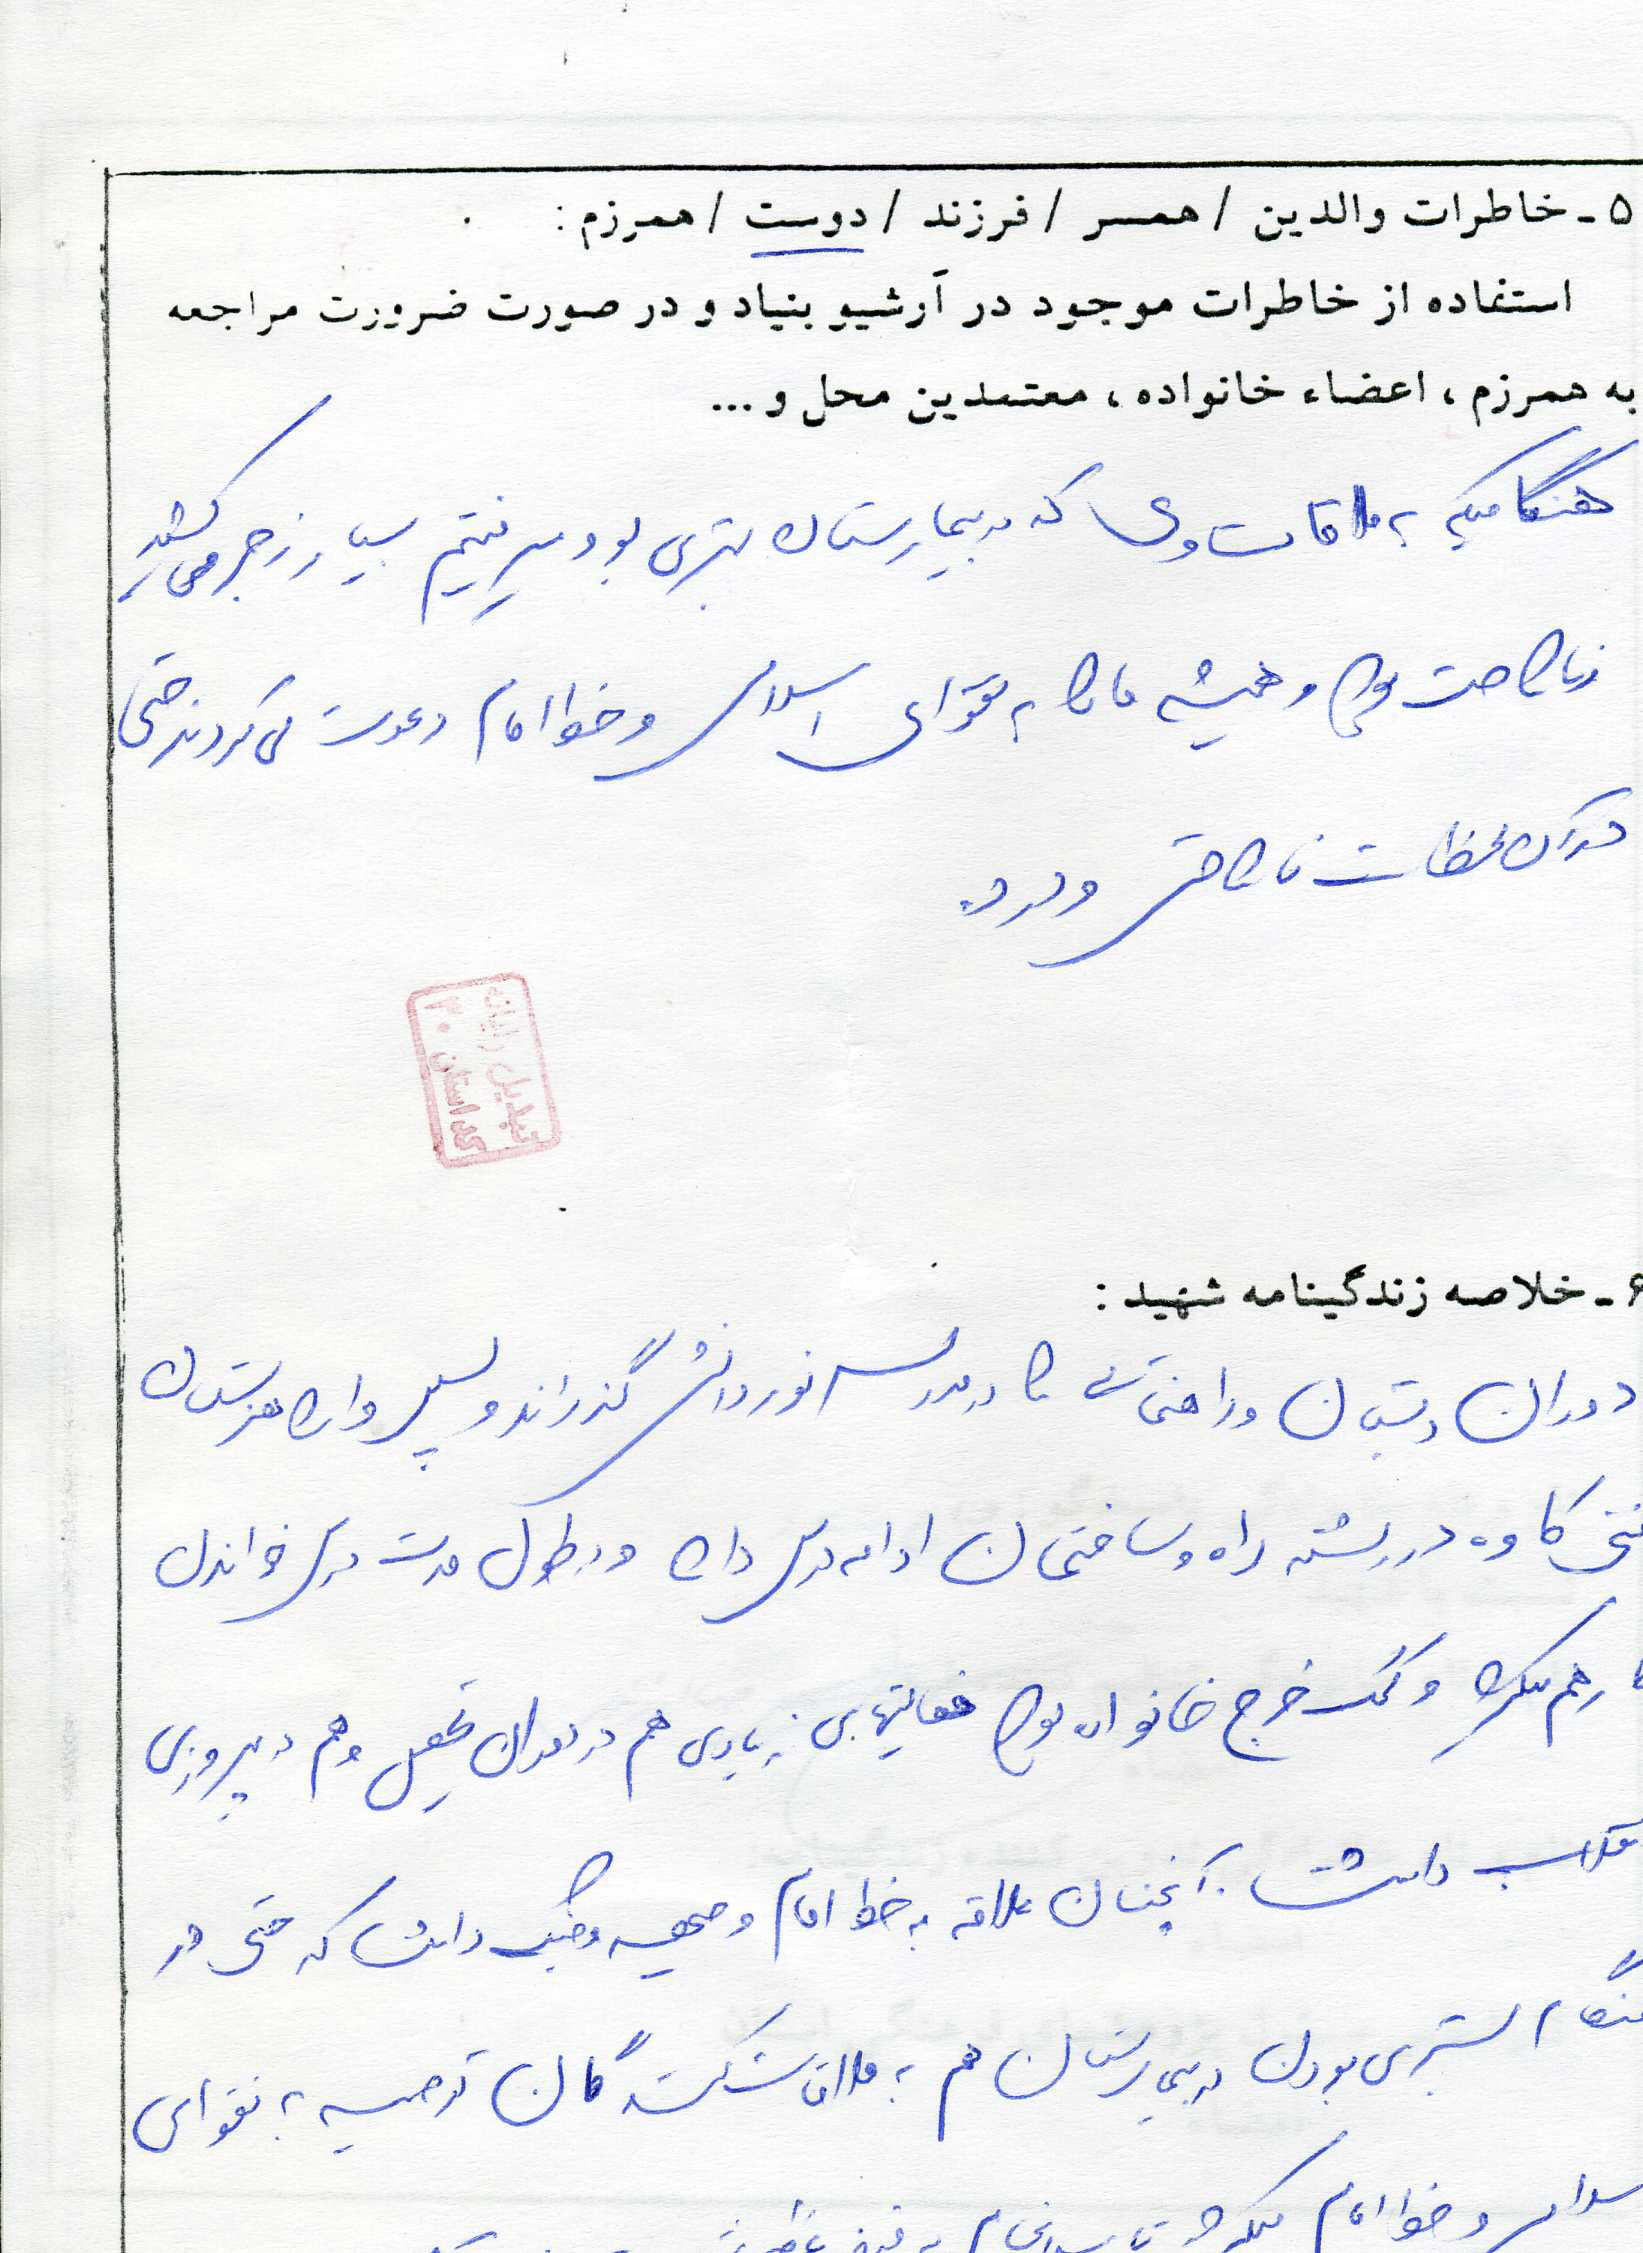 ۵ - خاطرات والدین / همسر / فرزند / دوست / همرزم :
استفاده از خاطرات موجود در آرشیو بنیاد و در صورت ضرورت مراجعه
به همرزم ، اعضاء خانواده ، معتمدین محل و ...
هنگامیکه به ملاقات وی که در بیمارستان بستری بود میرفتیم بسیار زجر می کشید
ناراحت بود و همیشه ما را به تقوای اسلامی و خط امام دعوت می کردند حتی
در آن لحظات ناراحتی و درد.
تبدیل رایانه
کد استان ۳۰
۶ - خلاصه زندگینامه شهید :
دوران دبستان و راهنمائی را در مدرسه نور دانش گذراند و سپس وارد هنرستان
فنی کاوه در رشته راه و ساختمان ادامه درس داد و در طول مدت درس خواندن
کار هم میکرد و کمک خرج خانواده بود فعالیتهایی زیادی هم در دوران تحصیل و هم در پیروزی
انقلاب داشت . آنچنان علاقه به خط امام و جبهه و جنگ داشت که حتی در
هنگام بستری بودن در بیمارستان هم به ملاقات کنندگان توصیه به تقوای
اسلامی و خط امام میکرد تا سرانجام به